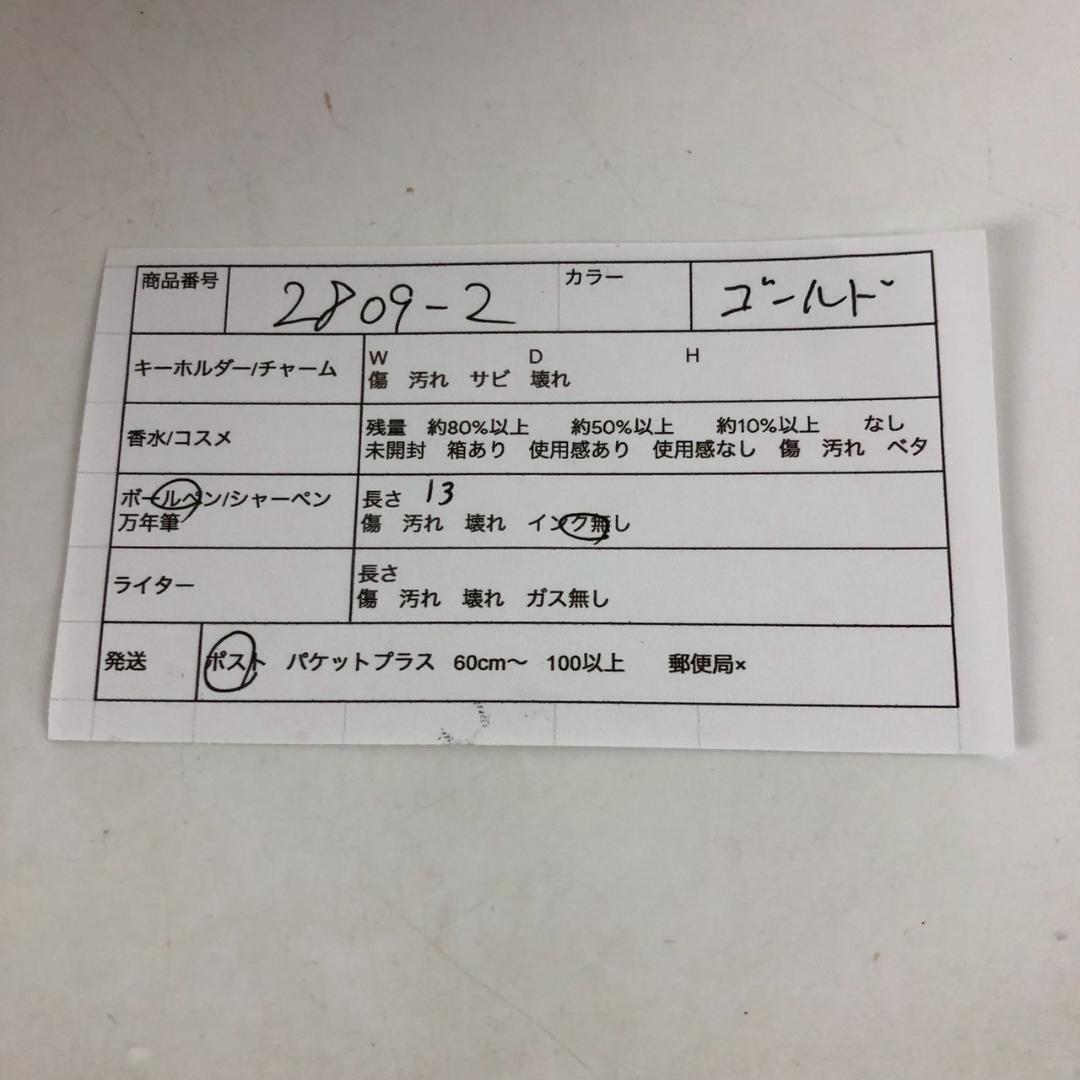 商品番号 2809-2 カラー ゴールド
キーホルダー/チャーム W D H
傷 汚れ サビ 壊れ
香水/コスメ 残量 約80%以上 約50%以上 約10%以上 なし
未開封 箱あり 使用感あり 使用感なし 傷 汚れ ベタ
ボールペン/シャーペン 長さ 13
万年筆 傷 汚れ 壊れ インク無し
ライター 長さ
傷 汚れ 壊れ ガス無し
発送 ポスト パケットプラス 60cm〜 100以上 郵便局×